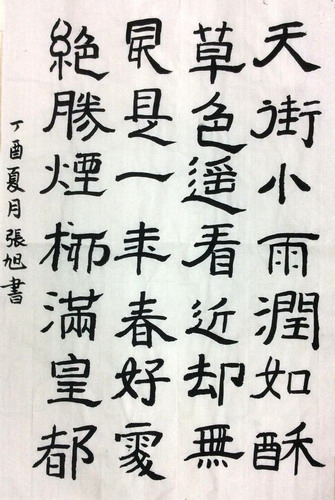 天街小雨潤如酥
草色遥看近却無
最是一年春好處
絶勝煙柳滿皇都
丁酉夏月張旭書